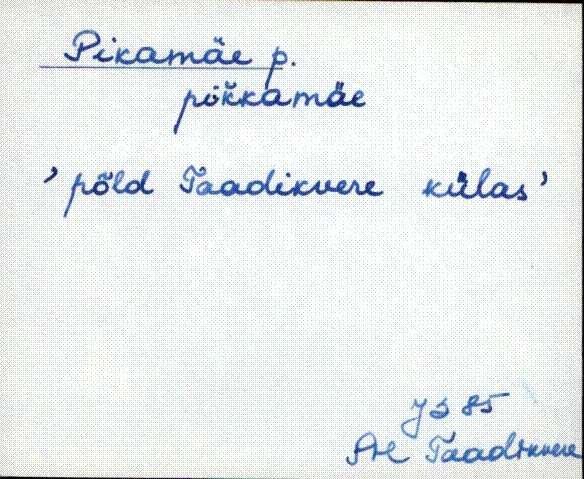 Pikamäe p.
pikkamäe
'põld Taadikvere külas'
JS 85
Taadikvere